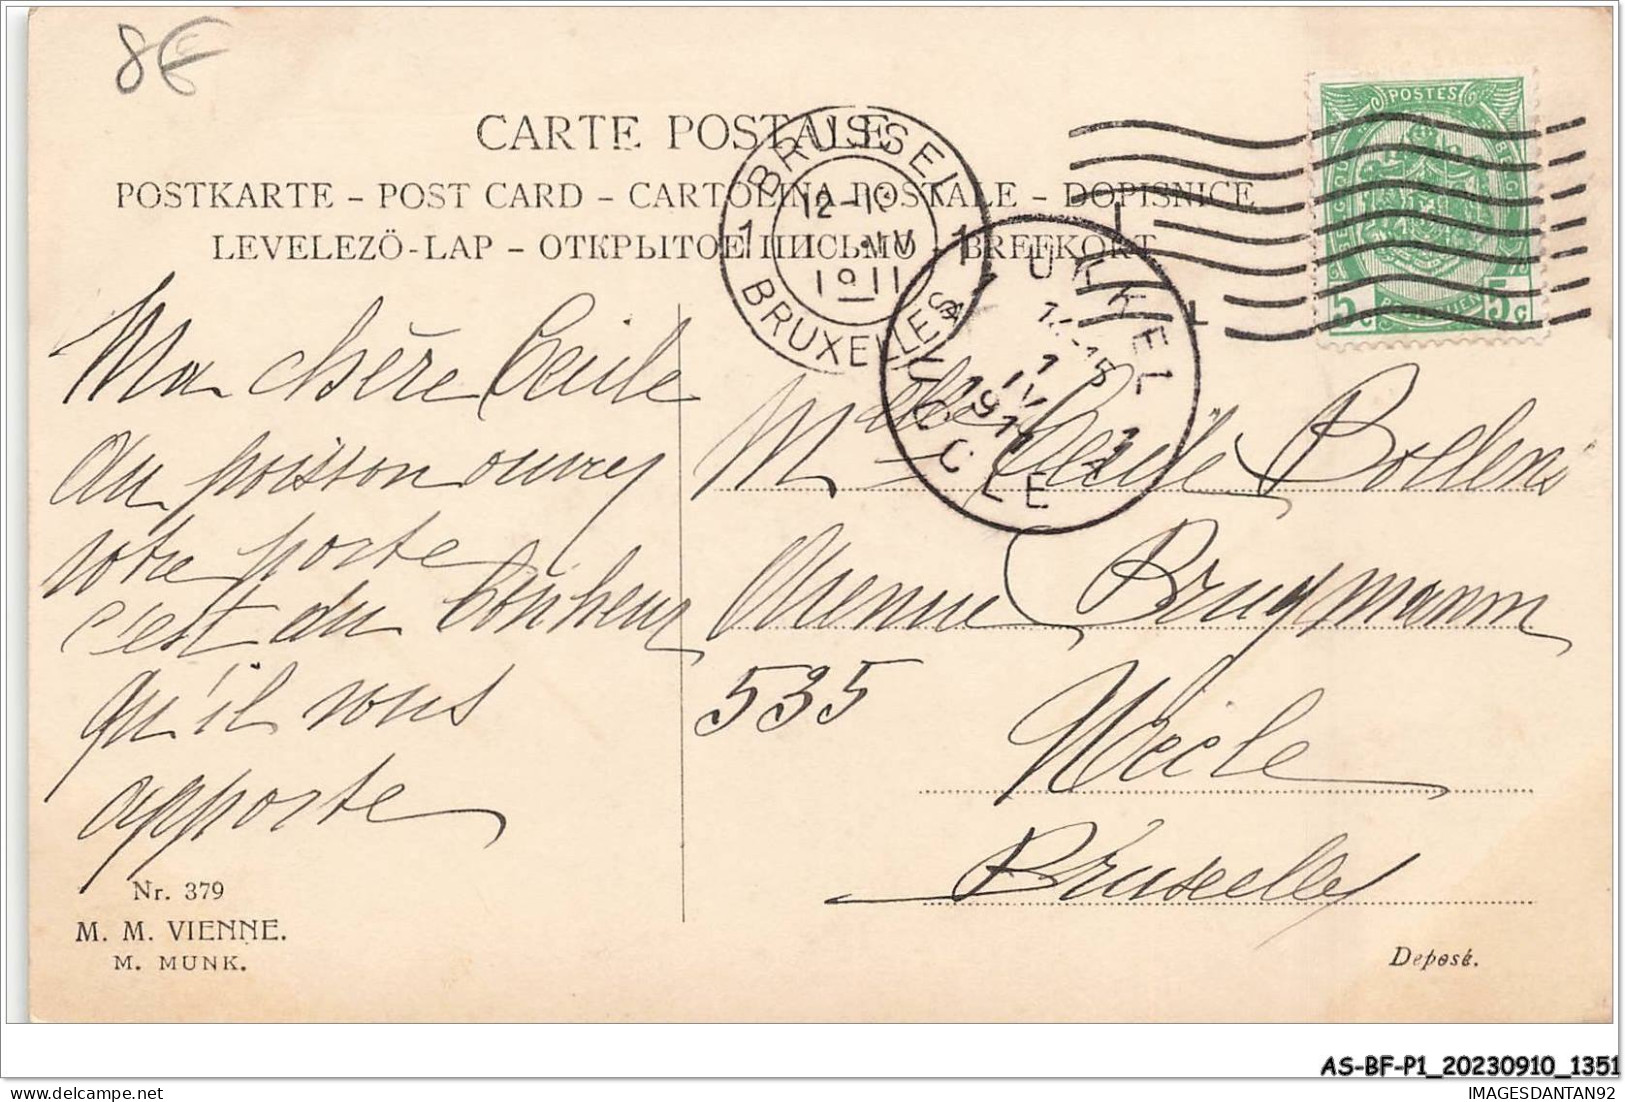 8€
CARTE POSTALE
POSTKARTE – POST CARD – CARTOLINA POSTALE – DOPISNICE
LEVELEZÖ-LAP – ОТКРЫТОЕ ПИСЬМО – BREFKORT
BRUSSEL
1 1
12-1
1 IV
1911
BRUXELLES
UKKEL
1 1
15
1
IV
1911
UCCLE
POSTES
BELGIQUE
5c 5c
Ma chère Cécile
Au poisson ouvrez
votre porte
c'est du bonheur
qu'il vous
apporte
Melle Cécile Bollens
Avenue Brugmann
535
Uccle
Bruxelles
Nr. 379
M. M. VIENNE.
M. MUNK.
Deposé.
AS-BF-P1_20230910_1351
IMAGESDANTAN92